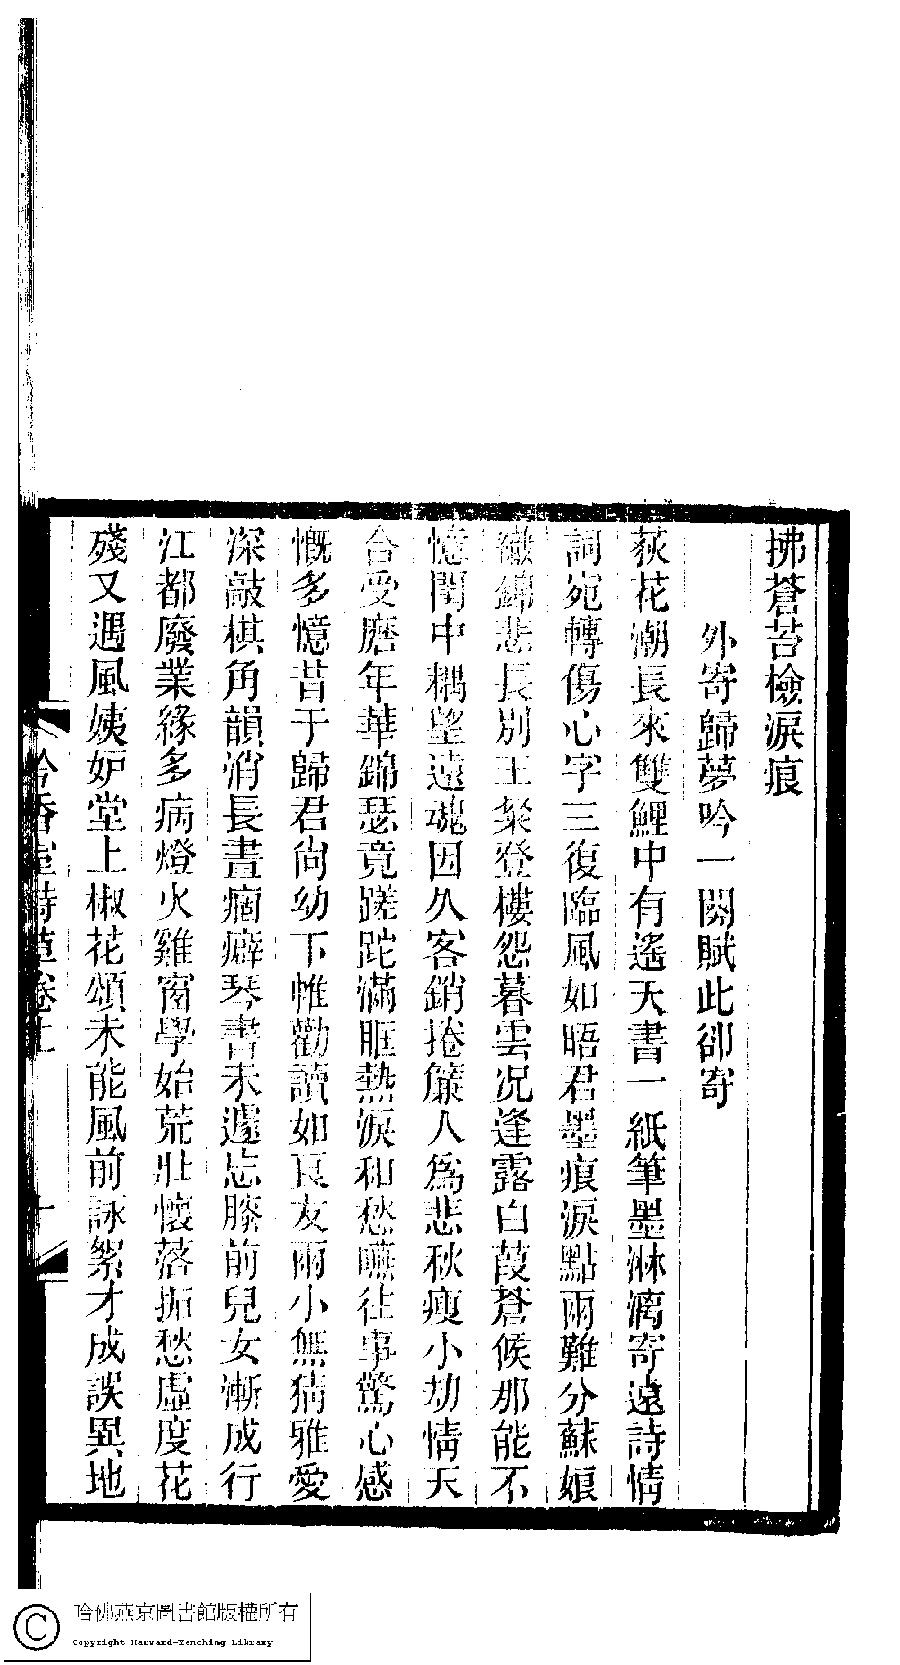 拂蒼苔檢淚痕
外寄歸夢吟一闋賦此卻寄
荻花潮長來雙鯉中有遙天書一紙筆墨淋漓寄遠詩情
詞宛轉傷心字三復臨風如晤君墨痕淚點兩難分蘇娘
織錦悲長別王粲登樓怨暮雲况逢露白葭蒼候那能不
憶閨中耦望遠魂因久客銷捲簾人爲悲秋瘦小劫情天
合受磨年華錦瑟竟蹉跎滿眶熱淚和愁嚥往事驚心感
慨多憶昔于歸君尚幼下帷勸讀如良友兩小無猜雅愛
深敲棋角韻消長晝痼癖琴書未遽忘膝前兒女漸成行
江都廢業緣多病燈火雞窗學始荒壯懷落拓愁虛度花
殘又遇風姨妒堂上椒花頌未能風前詠絮才成誤異地
吟香室詩草卷上
十
哈佛燕京圖書館版權所有
Copyright Harvard-Yenching Library